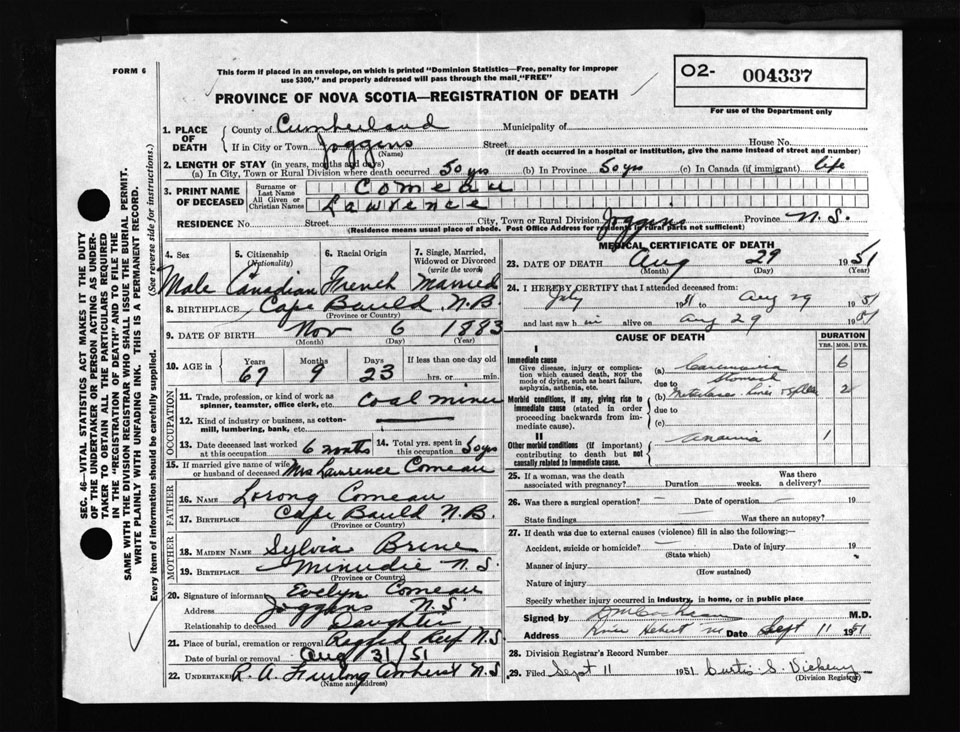 FORM 6
This form if placed in an envelope, on which is printed "Dominion Statistics—Free, penalty for improper
use $300," and properly addressed will pass through the mail "FREE"
O2- 004337
For use of the Department only
PROVINCE OF NOVA SCOTIA—REGISTRATION OF DEATH
1. PLACE OF DEATH
County of Cumberland Municipality of
If in City or Town Joggins Street House No.
(Name) (If death occurred in a hospital or institution, give the name instead of street and number)
2. LENGTH OF STAY (in years, months and days)
(a) In City, Town or Rural Division where death occurred 50 yrs (b) In Province 50 yrs (c) In Canada (if immigrant) life
3. PRINT NAME OF DECEASED
Surname or Last Name Comeau
All Given or Christian Names Lawrence
RESIDENCE No. Street City, Town or Rural Division Joggins Province N.S.
(Residence means usual place of abode. Post Office Address for residents in rural parts not sufficient)
4. Sex 5. Citizenship (Nationality) 6. Racial Origin 7. Single, Married, Widowed or Divorced (write the word)
Male Canadian French Married
8. BIRTHPLACE Cape Bauld N.B.
(Province or Country)
9. DATE OF BIRTH Nov 6 1883
(Month) (Day) (Year)
10. AGE in Years Months Days If less than one day old
67 9 23 hrs. or min.
OCCUPATION
11. Trade, profession, or kind of work as spinner, teamster, office clerk, etc. Coal miner
12. Kind of industry or business, as cotton-mill, lumbering, bank, etc.
13. Date deceased last worked at this occupation 6 months 14. Total yrs. spent in this occupation 50 yrs
15. If married give name of wife or husband of deceased Mrs Lawrence Comeau
FATHER
16. NAME Lorong Comeau
17. BIRTHPLACE Cape Bauld N.B.
(Province or Country)
MOTHER
18. MAIDEN NAME Sylvia Brine
19. BIRTHPLACE Minudie N.S.
(Province or Country)
20. Signature of informant Evelyn Comeau
Address Joggins N.S.
Relationship to deceased Daughter
21. Place of burial, cremation or removal Ragged Reef N.S
Date of burial or removal Aug 31/51
22. UNDERTAKER R. A. Furlong Amherst N.S
(Name and Address)
MEDICAL CERTIFICATE OF DEATH
23. DATE OF DEATH Aug 29 1951
(Month) (Day) (Year)
24. I HEREBY CERTIFY that I attended deceased from:
July 1951 to Aug 29 1951
and last saw him alive on Aug 29 1951
CAUSE OF DEATH DURATION
YRS. MOS. DYS.
I
Immediate cause
Give disease, injury or complication which caused death, not the mode of dying, such as heart failure, asphyxia, asthenia, etc.
(a) Carcinoma 6
due to Stomach
Morbid conditions, if any, giving rise to immediate cause (stated in order proceeding backwards from immediate cause).
(b) 2
due to
(c)
II
Other morbid conditions (if important) contributing to death but not causally related to immediate cause.
Anaemia 1
25. If a woman, was the death associated with pregnancy? Duration weeks. Was there a delivery?
26. Was there a surgical operation? – Date of operation – 19
State findings Was there an autopsy?
27. If death was due to external causes (violence) fill in also the following:—
Accident, suicide or homicide? Date of injury 19
(State which)
Manner of injury
(How sustained)
Nature of injury
Specify whether injury occurred in industry, in home, or in public place
Signed by M.D.
Address River Hebert Date Sept 11 1951
28. Division Registrar's Record Number
29. Filed Sept 11 1951 Curtis S. Vickery
(Division Registrar)
SEC. 46—VITAL STATISTICS ACT MAKES IT THE DUTY
OF THE UNDERTAKER OR PERSON ACTING AS UNDER-
TAKER TO OBTAIN ALL THE PARTICULARS REQUIRED
IN THE "REGISTRATION OF DEATH" AND TO FILE THE
SAME WITH THE DIVISION REGISTRAR WHO SHALL ISSUE THE BURIAL PERMIT.
WRITE PLAINLY WITH UNFADING INK. THIS IS A PERMANENT RECORD.
Every item of information should be carefully supplied. (See reverse side for instructions.)